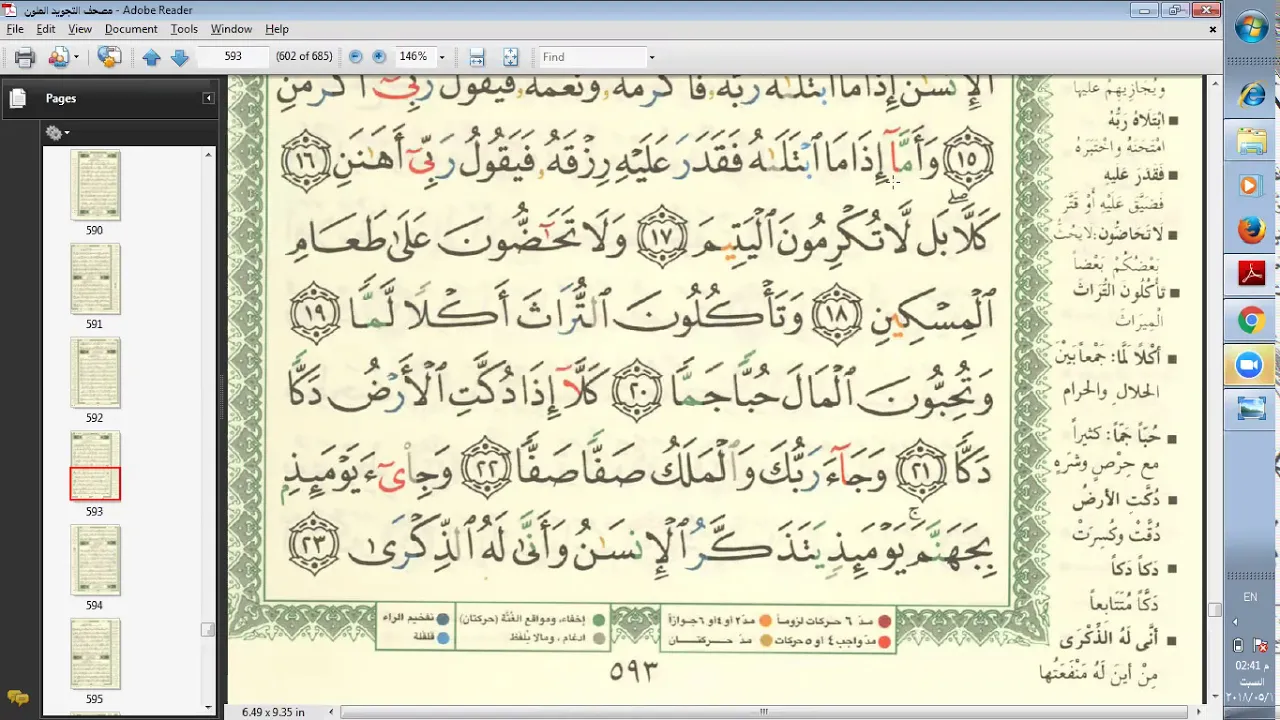 مصحف التجويد الملون - Adobe Reader
File Edit View Document Tools Window Help
593 (602 of 685) 146% Find
Pages
590
591
592
593
594
595
ٱلْإِنسَٰنُ إِذَا مَا ٱبْتَلَىٰهُ رَبُّهُۥ فَأَكْرَمَهُۥ وَنَعَّمَهُۥ فَيَقُولُ رَبِّىٓ أَكْرَمَنِ
١٥ وَأَمَّآ إِذَا مَا ٱبْتَلَىٰهُ فَقَدَرَ عَلَيْهِ رِزْقَهُۥ فَيَقُولُ رَبِّىٓ أَهَٰنَنِ ١٦
كَلَّا ۖ بَل لَّا تُكْرِمُونَ ٱلْيَتِيمَ ١٧ وَلَا تَحَٰٓضُّونَ عَلَىٰ طَعَامِ
ٱلْمِسْكِينِ ١٨ وَتَأْكُلُونَ ٱلتُّرَاثَ أَكْلًا لَّمًّا ١٩
وَتُحِبُّونَ ٱلْمَالَ حُبًّا جَمًّا ٢٠ كَلَّآ إِذَا دُكَّتِ ٱلْأَرْضُ دَكًّا
دَكًّا ٢١ وَجَآءَ رَبُّكَ وَٱلْمَلَكُ صَفًّا صَفًّا ٢٢ وَجِا۟ىٓءَ يَوْمَئِذٍۭ
بِجَهَنَّمَ ۚ يَوْمَئِذٍ يَتَذَكَّرُ ٱلْإِنسَٰنُ وَأَنَّىٰ لَهُ ٱلذِّكْرَىٰ ٢٣
وَيُجَازِيهِمْ عليها
ابْتَلَاهُ رَبُّهُ
امْتَحَنَهُ وَاخْتَبَرَهُ
فَقَدَرَ عَلَيهِ
فَضَيَّقَ عَلَيْهِ أَوْ قَتَّرَ
لا تَحَاضُّونَ: لا يَحُثُّ
بَعْضُكُمْ بَعْضاً
تأكُلُونَ التُّرَاثَ
الْمِيرَاثَ
أَكْلًا لَمًّا: جَمْعاً بَيْنَ
الحلالِ والحرامِ
حُبّاً جَمّاً: كثيراً
مع حِرْصٍ وشَرَهٍ
دُكَّتِ الأرضُ
دُقَّتْ وكُسِرَتْ
دَكاً دَكاً
دَكّاً مُتَتَابِعاً
أنَّى لَهُ الذِّكْرَى
مِنْ أَينَ لَهُ مَنْفَعَتُها
مدّ ٦ حركات لزوماً مدّ ٢ أو ٤ أو ٦ جوازاً
مدّ واجب ٤ أو ٥ حركات مدّ حركتان
إخفاء، ومواقع الغُنَّة (حركتان) تفخيم الراء
ادغام، وما لا يُلفظ قلقلة
٥٩٣
6.49 x 9.35 in
EN
02:41 م
السبت